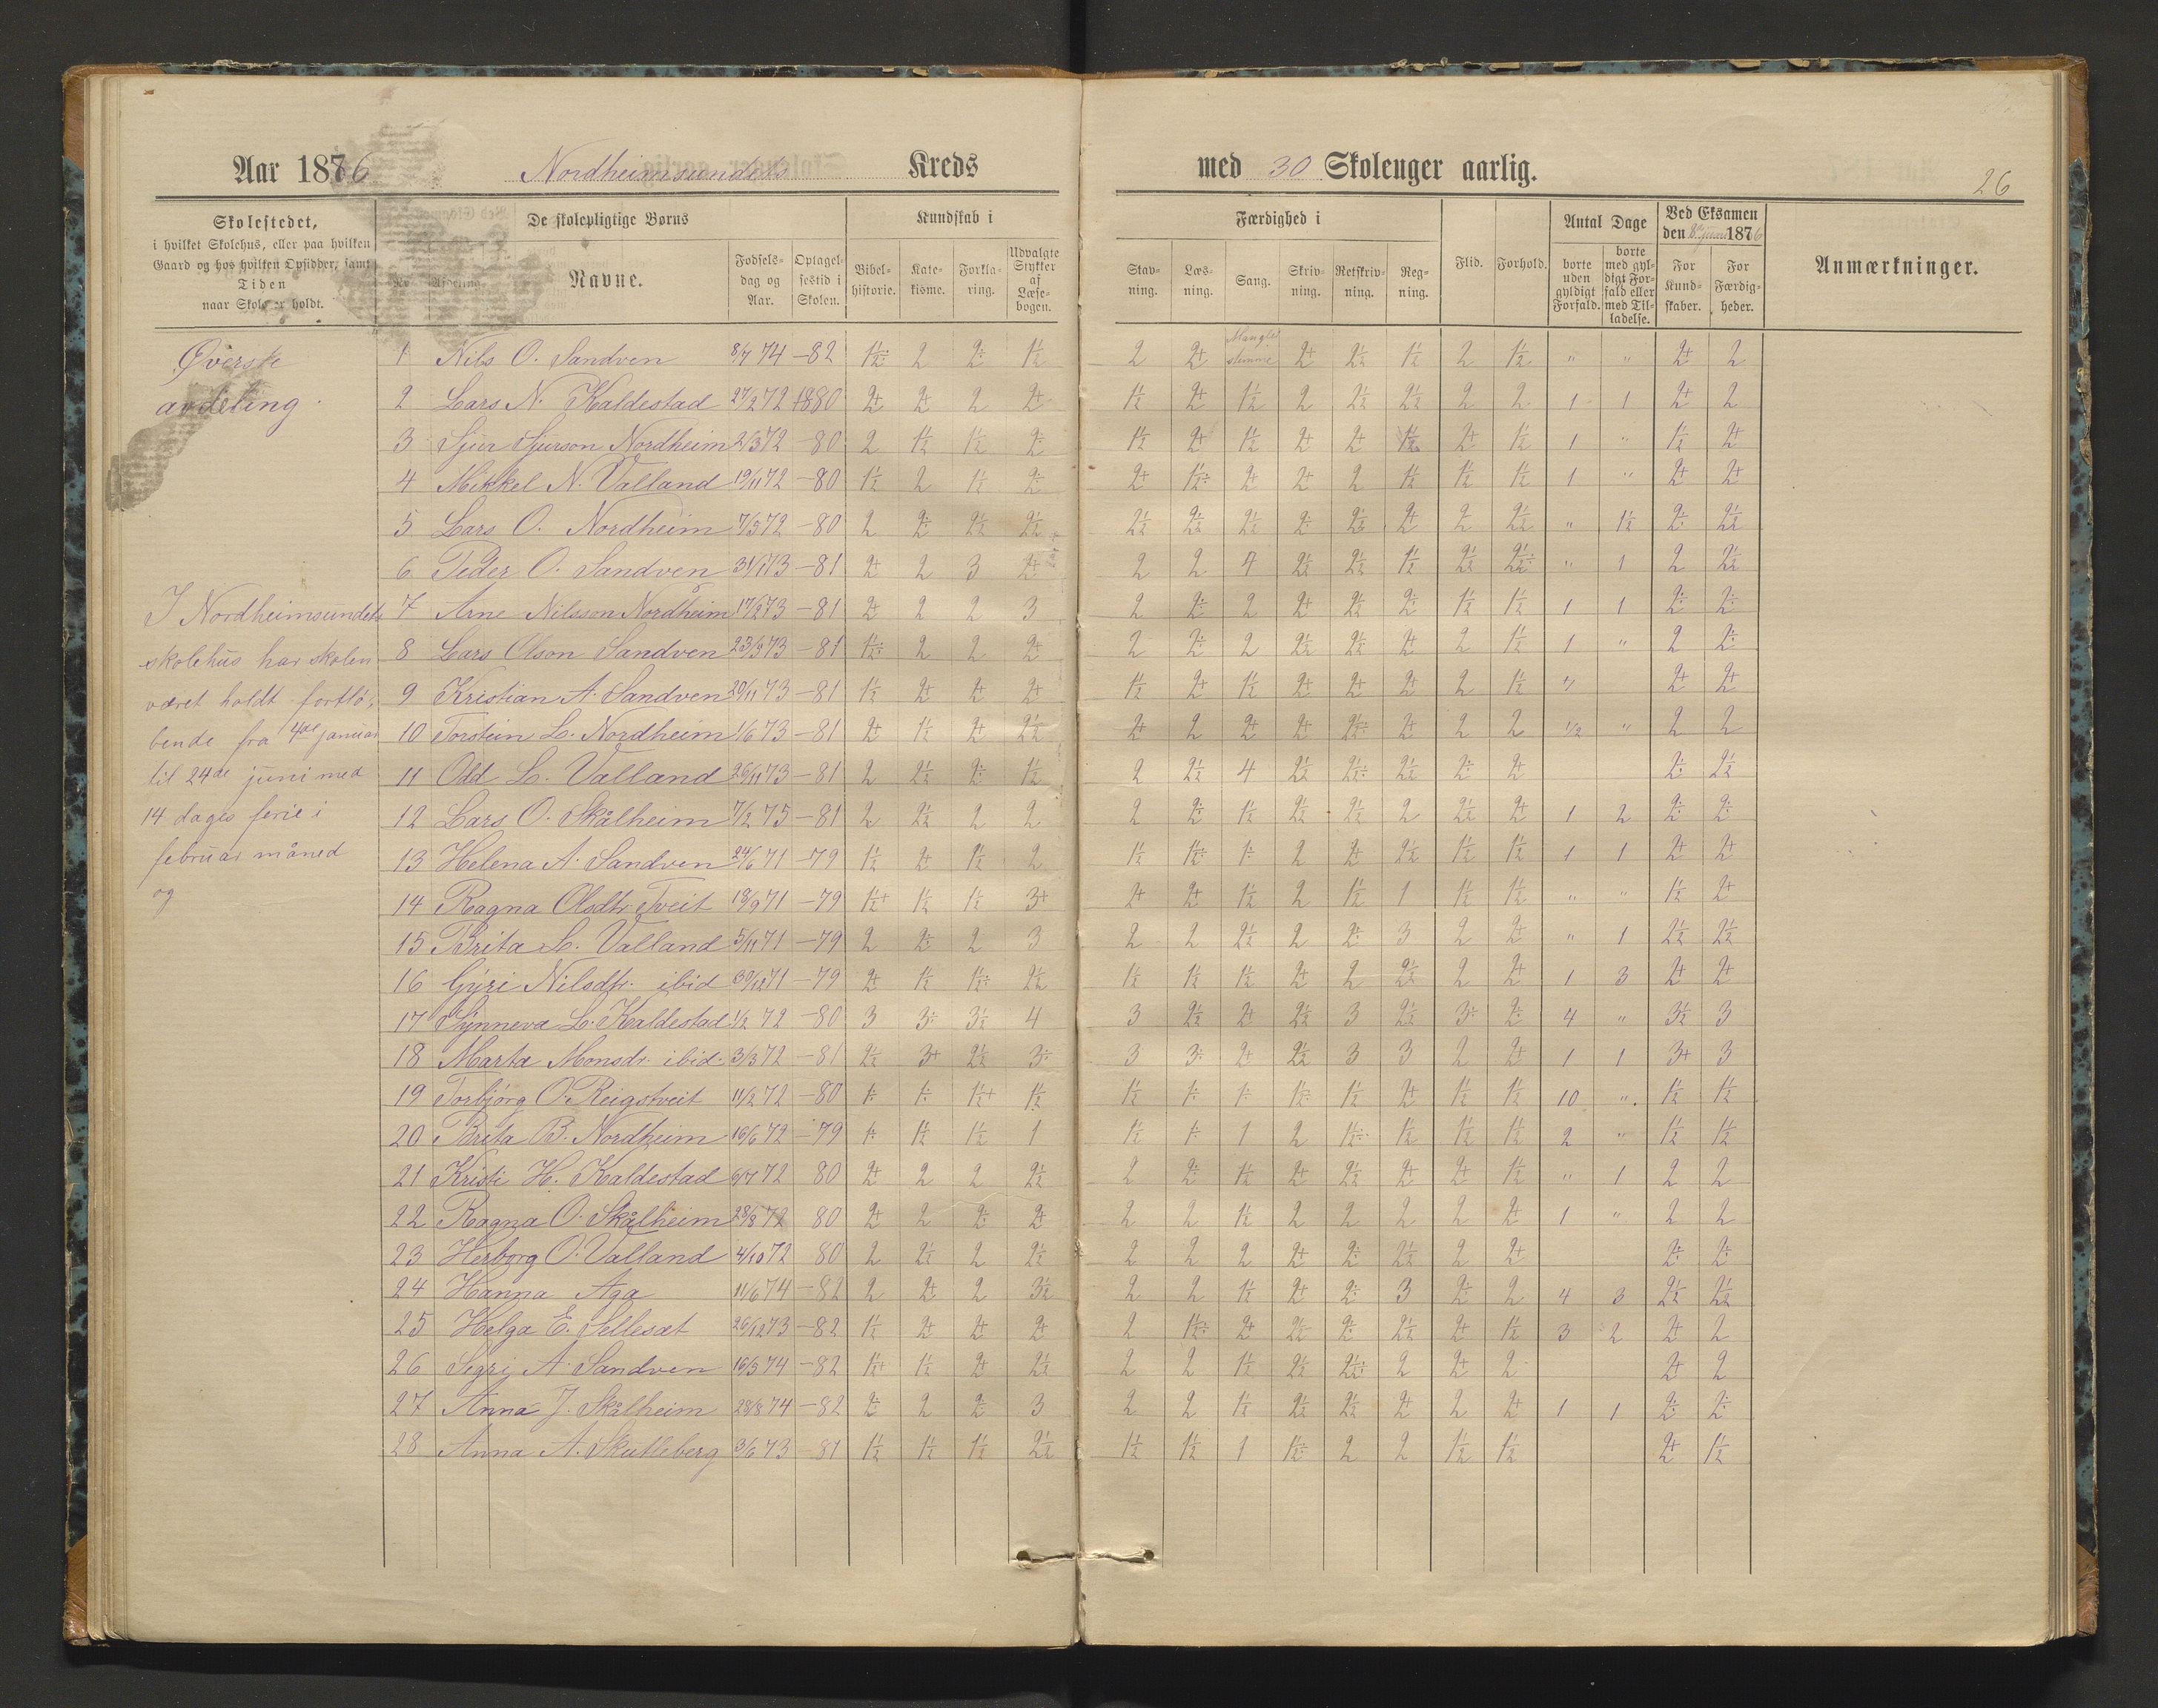 Aar 1876 Nordheimsundets Kreds
med 30 Skolenger aarlig.
26
Skolestedet,
i hvilket Skolehus, eller paa hvilken
Gaard og hos hvilken Opsidder, samt
Tiden
naar Skolen er holdt.
De skolepligtige Børns
Nr. Afdeling.
Navne.
Fødsels-
dag og
Aar.
Optagel-
sestid i
Skolen.
Kundskab i
Bibel-
historie.
Kate-
kisme.
Forkla-
ring.
Udvalgte
Stykker
af
Læse-
bogen.
Færdighed i
Stav-
ning.
Læs-
ning.
Sang.
Skriv-
ning.
Retskriv-
ning.
Reg-
ning.
Flid.
Forhold.
Antal Dage
borte
uden
gyldigt
Forfald.
borte
med gyl-
digt For-
fald eller
med Til-
ladelse.
Ved Eksamen
den 8de juni 1876
For
Kund-
skaber.
For
Færdig-
heder.
Anmærkninger.
Øverste
avdeling.
I Nordheimsundets
skolehus har skolen
været holdt fortlø-
bende fra 4de januar
til 24de juni med
14 dages ferie i
februar måned
og
1 Nils O. Sandven 8/7 74 -82 1½÷ 2 2÷ 1½ 2 2+ Mangler stemme 2+ 2½ 1½ 2 1½ " " 2+ 2
2 Lars N. Kaldestad 27/2 72 1880 2+ 2+ 2 2+ 1½ 2+ 1½ 2 2½ 2½ 2 2 1 1 2+ 2
3 Sjur Sjurson Nordheim 2/3 72 -80 2 1½ 1½ 2÷ 1½ 2+ 1½ 2+ 2+ 1½ 2+ 1½ 1 " 1½ 2+
4 Mikkel N. Valland 19/11 72 -80 1½ 2 1½ 2÷ 2+ 1½÷ 2+ 2+ 2 1½ 1½ 1½ 1 " 2+ 2+
5 Lars O. Nordheim 7/5 72 -80 2 2÷ 2½ 2½ 2½ 2½ 2½ 2÷ 2½ 2+ 2 2½ " 1½ 2÷ 2½
6 Peder O. Sandven 31/1 73 -81 2+ 2 3 2+ 2 2 4 2½ 2½ 1½ 2½ 2½÷ " 1 2 2½
7 Arne Nilsson Nordheim 17/2 73 -81 2+ 2 2 3 2 2÷ 2 2+ 2½ 2÷ 1½ 1½ 1 1 2÷ 2÷
8 Lars Olson Sandven 23/9 73 -81 1½÷ 2 2 2+ 2 2÷ 2 2½ 2½ 2+ 2 1½ 1 " 2 2÷
9 Kristian A. Sandven 20/11 73 -81 1½ 2+ 2+ 2+ 1½ 2+ 1½ 2+ 2+ 2+ 2 1½ " 2+ 2+
10 Torstein L. Nordheim 1/6 73 -81 2+ 1½ 2+ 2½ 2+ 2 2+ 2+ 2½÷ 2+ 2 2 1/2 " 2 2
11 Odd L. Valland 26/11 73 -81 2 2½ 2÷ 1½ 2 2½ 4 2½ 2½÷ 2½ 2÷ 2+ 2÷ 2½
12 Lars O. Skålheim 7/2 75 -81 2 2½ 2 2 2 2÷ 1½ 2½ 2½ 2 2½ 2+ 1 2 2÷ 2÷
13 Helena A. Sandven 24/6 71 -79 1½ 2+ 1½ 2 1½ 1½÷ 1÷ 2 2+ 2½ 1½ 1½ 1 1 2+ 2+
14 Ragna Olsdtr. Tveit 18/9 71 -79 1½+ 1½ 1½ 3+ 2+ 2+ 1½ 2 1½ 1 1½ 1½ " " 1½ 2+
15 Brita L. Valland 5/11 71 -79 2 2÷ 2 3 2 2 2½ 2 2÷ 3 2 2+ " 1 2½ 2½
16 Gýri Nilsdtr. ibid 30/12 71 -79 2+ 1½ 1½÷ 2½ 1½ 1½ 1½ 2+ 2 2½ 2 2+ 1 3 2+ 2+
17 Synneva L. Kaldestad 1/2 72 -80 3 3÷ 3½ 4 3 2½ 2+ 2½ 3 2½ 3÷ 2÷ 4 " 3½ 3
18 Marta Monsdr. ibid. 3/3 72 -81 2½ 3+ 2½ 3÷ 3 3÷ 2+ 2½ 3 3 2 2+ 1 1 3+ 3
19 Torbjörg O. Reigstveit 11/2 72 -80 1÷ 1÷ 1½+ 1½ 1½ 1÷ 1÷ 1½÷ 1½ 2+ 1½ 1½ 10 " 1½ 1½
20 Brita B. Nordheim 16/6 72 -79 1÷ 1½ 1½ 1 1½ 1÷ 1 2 1½÷ 1½ 1½ 1½ 2 " 1½ 1½
21 Kristi H. Kaldestad 6/7 72 80 2+ 2 2 2½ 2 2÷ 1½ 2+ 2½ 2+ 2+ 1½ " 1 2 2
22 Ragna O. Skålheim 28/8 72 80 2+ 2 2÷ 2÷ 2 2 1½ 2 2 2 2 2+ 1 " 2 2
23 Herborg O. Valland 4/10 72 80 2 2½ 2 2½ 2 2 2 2+ 2÷ 2½ 2 2+ 2÷ 2÷
24 Hanna Aga 11/6 74 -82 2 2+ 2 3½ 2 2 1½ 2+ 2÷ 3 2÷ 2 4 3 2½ 2½
25 Helga E. Sellesæt 26/12 73 -82 1½ 2+ 2+ 2÷ 2 1½÷ 2+ 2½ 2÷ 2½ 2+ 1½ 3 2 2+ 2
26 Segrj A. Sandven 16/3 74 -82 1½+ 1½ 2+ 2½ 2 2 1½ 2½ 2½+ 2 2+ 2 2+ 2
27 Anna J. Skålheim 28/8 74 -82 2÷ 2 2÷ 3 2 2 1½ 2½ 2½ 2+ 2 2+ 1 1 2÷ 2÷
28 Anna A. Skutleberg 3/6 73 -81 1½ 1½ 1½ 2½ 1½ 1½ 1 1½÷ 2 2 1½ 1½ 2+ 1½